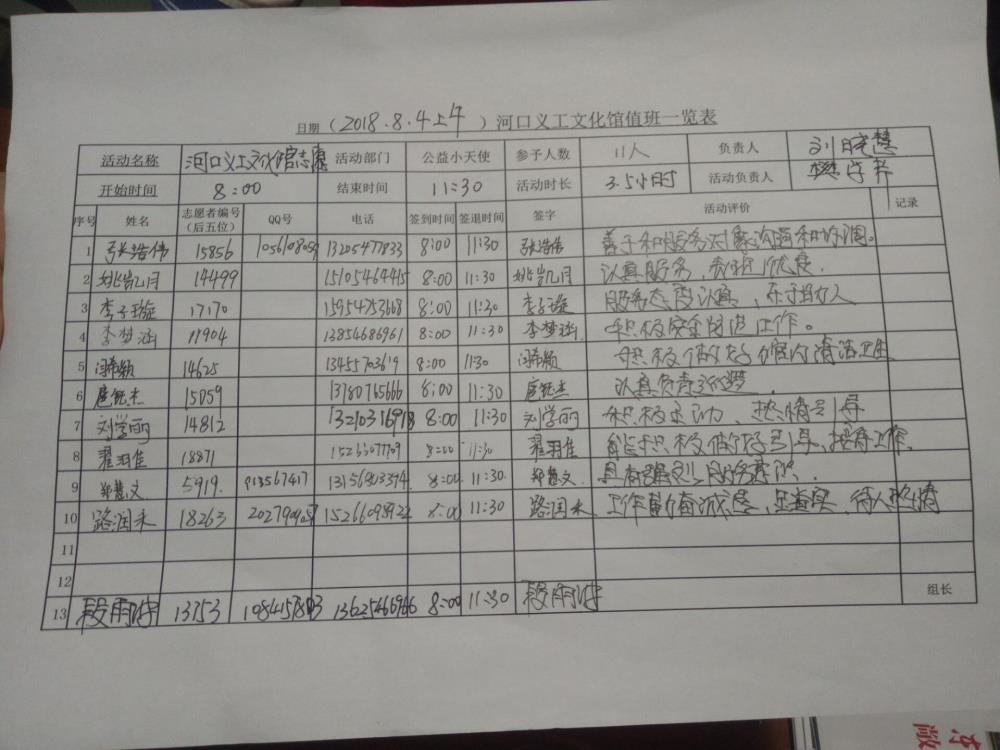 日期（2018.8.4上午）河口义工文化馆值班一览表
活动名称 河口义工文化馆志愿 活动部门 公益小天使 参予人数 11人 负责人 刘晓慧
开始时间 8:00 结束时间 11:30 活动时长 3.5小时 活动负责人
序号 姓名 志愿者编号（后五位） QQ号 电话 签到时间 签退时间 签字 活动评价 记录
1 张浩伟 15856 13205477833 8:00 11:30 张浩伟 善于和服务对象沟通和协调。
2 14499 15105464445 8:00 11:30 认真服务,表现优良.
3 李子璇 17170 15954753668 8:00 11:30 李子璇 服务态度认真，乐于助人
4 李梦涵 11904 13854686961 8:00 11:30 李梦涵 积极完全改进工作。
5 冯希颖 14625 13455703619 8:00 11:30 冯希颖 积极做好馆内清洁卫生
6 15059 13180765666 8:00 11:30 认真负责
7 刘学丽 14812 8:00 11:30 刘学丽 积极主动、热情引导
8 翟羽佳 18871 15266077709 8:00 11:30 翟羽佳 能积极做好引导、接待工作.
9 郑慧文 5919. 913567417 8:00 11:30. 郑慧文 具有强烈
10 路润禾 18263 8:00 11:30 路润禾 工作勤奋诚恳,,待人热情
11
12
13 段雨 13753 13625466966 8:00 11:30 段雨 组长